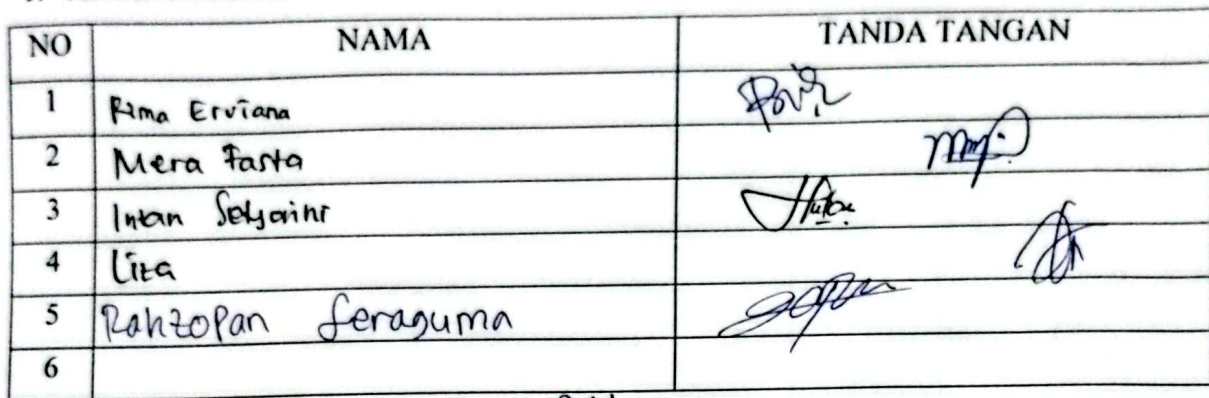 NO NAMA TANDA TANGAN
1 Rima Erviana
2 Mera Fasta
3 Intan Setyarini
4 Liza
5 Rahzopan Seraguma
6